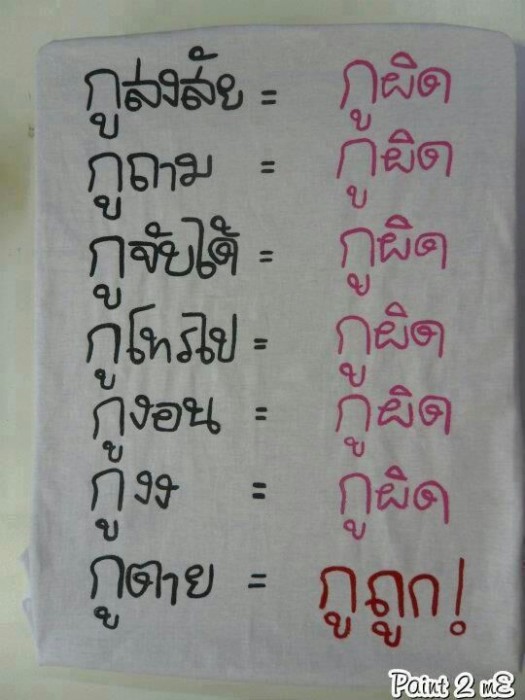 กูสงสัย = กูผิด
กูถาม = กูผิด
กูจับได้ = กูผิด
กูโทรไป = กูผิด
กูงอน = กูผิด
กูงง = กูผิด
กูตาย = กูถูก!
Paint 2 mE